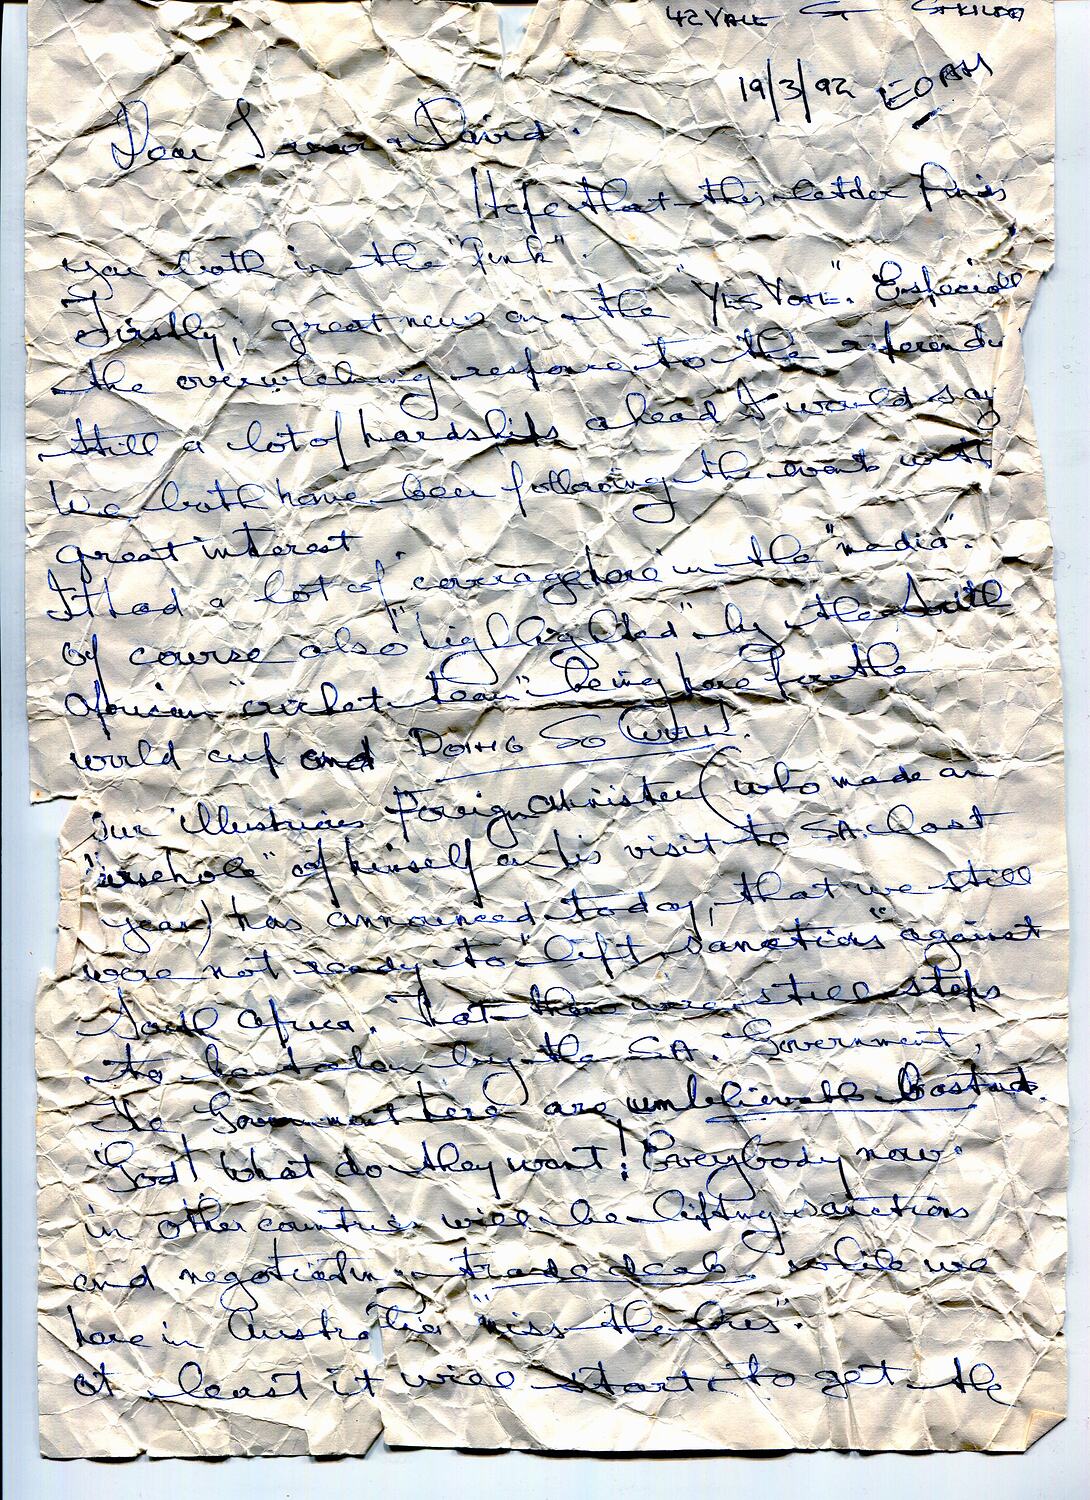 42 VALE ST ST KILDA
19/3/92
Dear & David.
Hope that this letter finds
you both in the "Pink".
Firstly, great news on the "YES VOTE". Especiall
the overwelming responce to the referendu
still a lot of hardships ahead I would say
We both have been following the events with
great interest
It had a lot of coverage here in the "media".
Of course also "highlighted" by the South
African "cricket team" being here for the
world cup and DOING SO WELL!.
Our illustrious Foreign Minister (who made an
"arsehole" of himself on his visit to SA. last
year) has announced today, that we still
were not ready to "lift sanctions" against
South Africa. That there were still steps
to be taken by the SA. Government,
The Government here are unbelievable bastards.
God! What do they want! Everybody now
in other countries will be lifting sanctions
and negotiatin trade deals, while we
here in Australia "miss the bus".
At least it will start to get the